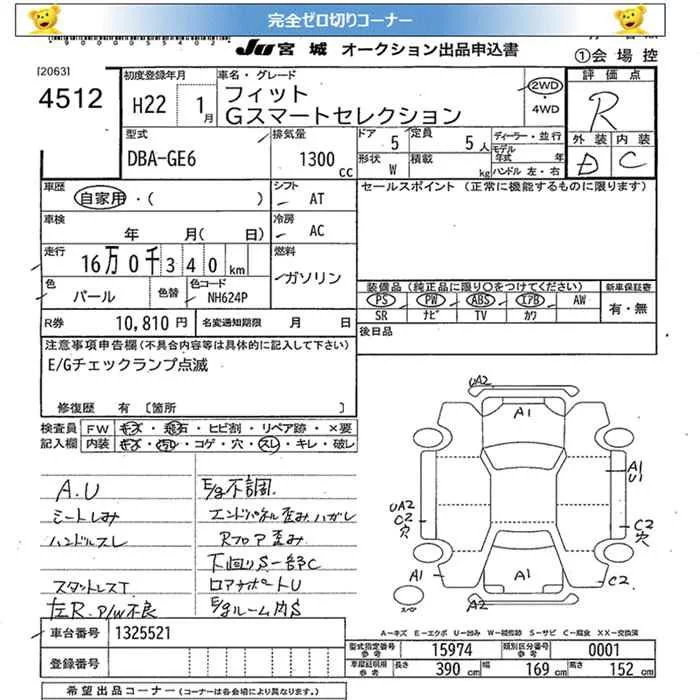 完全ゼロ切りコーナー
JU 宮城 オークション出品申込書
①会場控
[2063]
4512
初度登録年月
H22 1月
車名・グレード
フィット
Gスマートセレクション
2WD
・
4WD
評価点
R
外装 内装
D C
型式
DBA-GE6
排気量
1300 cc
ドア 5
定員 5人
形状 W
積載 kg
ディーラー・並行
モデル年式 年
ハンドル 左・右
車歴
自家用・( )
シフト
AT
セールスポイント (正常に機能するものに限ります)
車検
年 月(日)
冷房
AC
走行
16万0千340km
燃料
ガソリン
色
パール
色替
色コード
NH624P
装備品(純正品に限り○をつけてください)
PS PW ABS エアB AW
SR ナビ TV カワ
新車保証書
有・無
R券 10,810円
名変通知期限 月 日
後日品
注意事項申告欄(不具合内容等は具体的に記入して下さい)
E/Gチェックランプ点滅
修復歴 有 [箇所 ]
検査員記入欄
FW キズ・飛石・ヒビ割・リペア跡・×要
内装 キズ・汚レ・コゲ・穴・スレ・キレ・破レ
A.U
シートしみ
ハンドルスレ
スタットレスT
左R.P/W不良
E/g不調
エンドパネル歪み ハガレ
Rフロア歪み
下回りS一部C
ロアサポートU
E/gルーム内S
UA2
A1
A1
U1
UA2
C2
穴
C2
穴
A1
A1
C2
A2
スペア
A-キズ E-エクボ U-凹み W-補修跡 S-サビ C-腐食 XX-交換済
車台番号 1325521
登録番号
型式指定番号参考 15974
類別区分番号参考 0001
車庫証明用参考 長さ 390 cm 幅 169 cm 高さ 152 cm
希望出品コーナー(コーナーは各会場により異なります。)